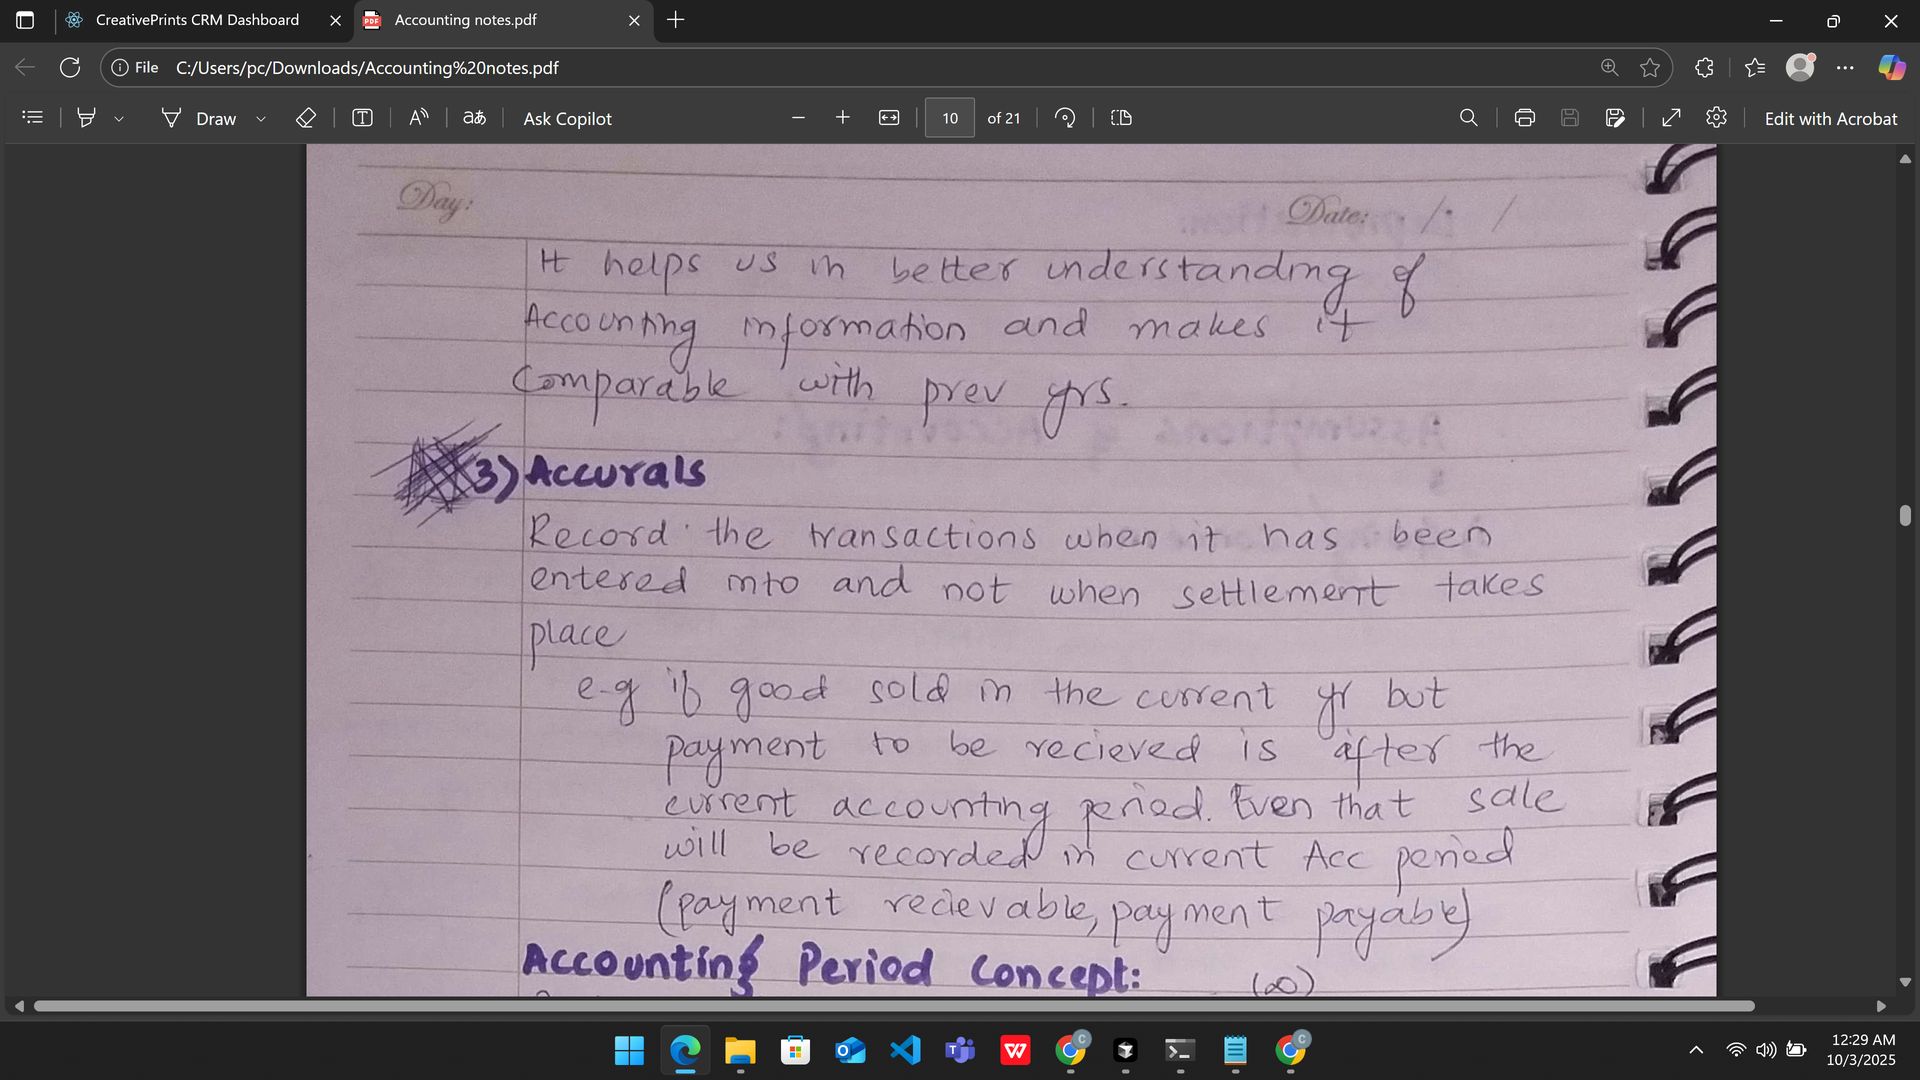 CreativePrints CRM Dashboard
Accounting notes.pdf
File C:/Users/pc/Downloads/Accounting%20notes.pdf
Draw Ask Copilot 10 of 21 Edit with Acrobat
Day: Date: / /
It helps us in better understanding of
Accounting information and makes it
Comparable with prev yrs.
3) Accurals
Record the transactions when it has been
entered into and not when settlement takes
place
e-g if good sold in the current yr but
payment to be recieved is after the
current accounting period. Even that sale
will be recorded in current Acc period
(payment recievable, payment payable)
Accounting Period Concept: (∞)
12:29 AM
10/3/2025